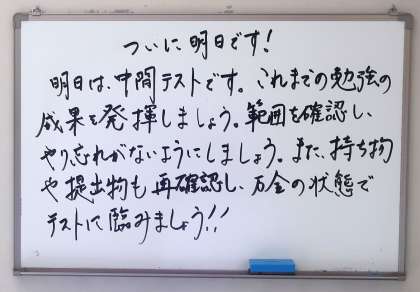 ついに明日です!
明日は、中間テストです。これまでの勉強の
成果を発揮しましょう。範囲を確認し、
やり忘れがないようにしましょう。また、持ち物
や提出物も再確認し、万全の状態で
テストに臨みましょう!!